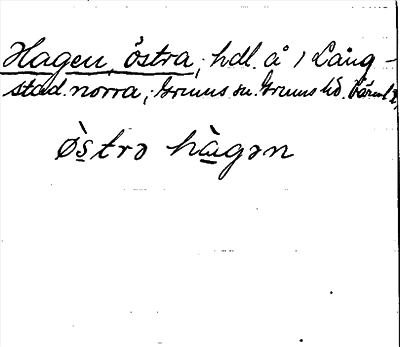 Hagen, östra, hdl. å 1 Lång-
stad norra, Grums sn. Grums hd. Värml.
östrə hàgən